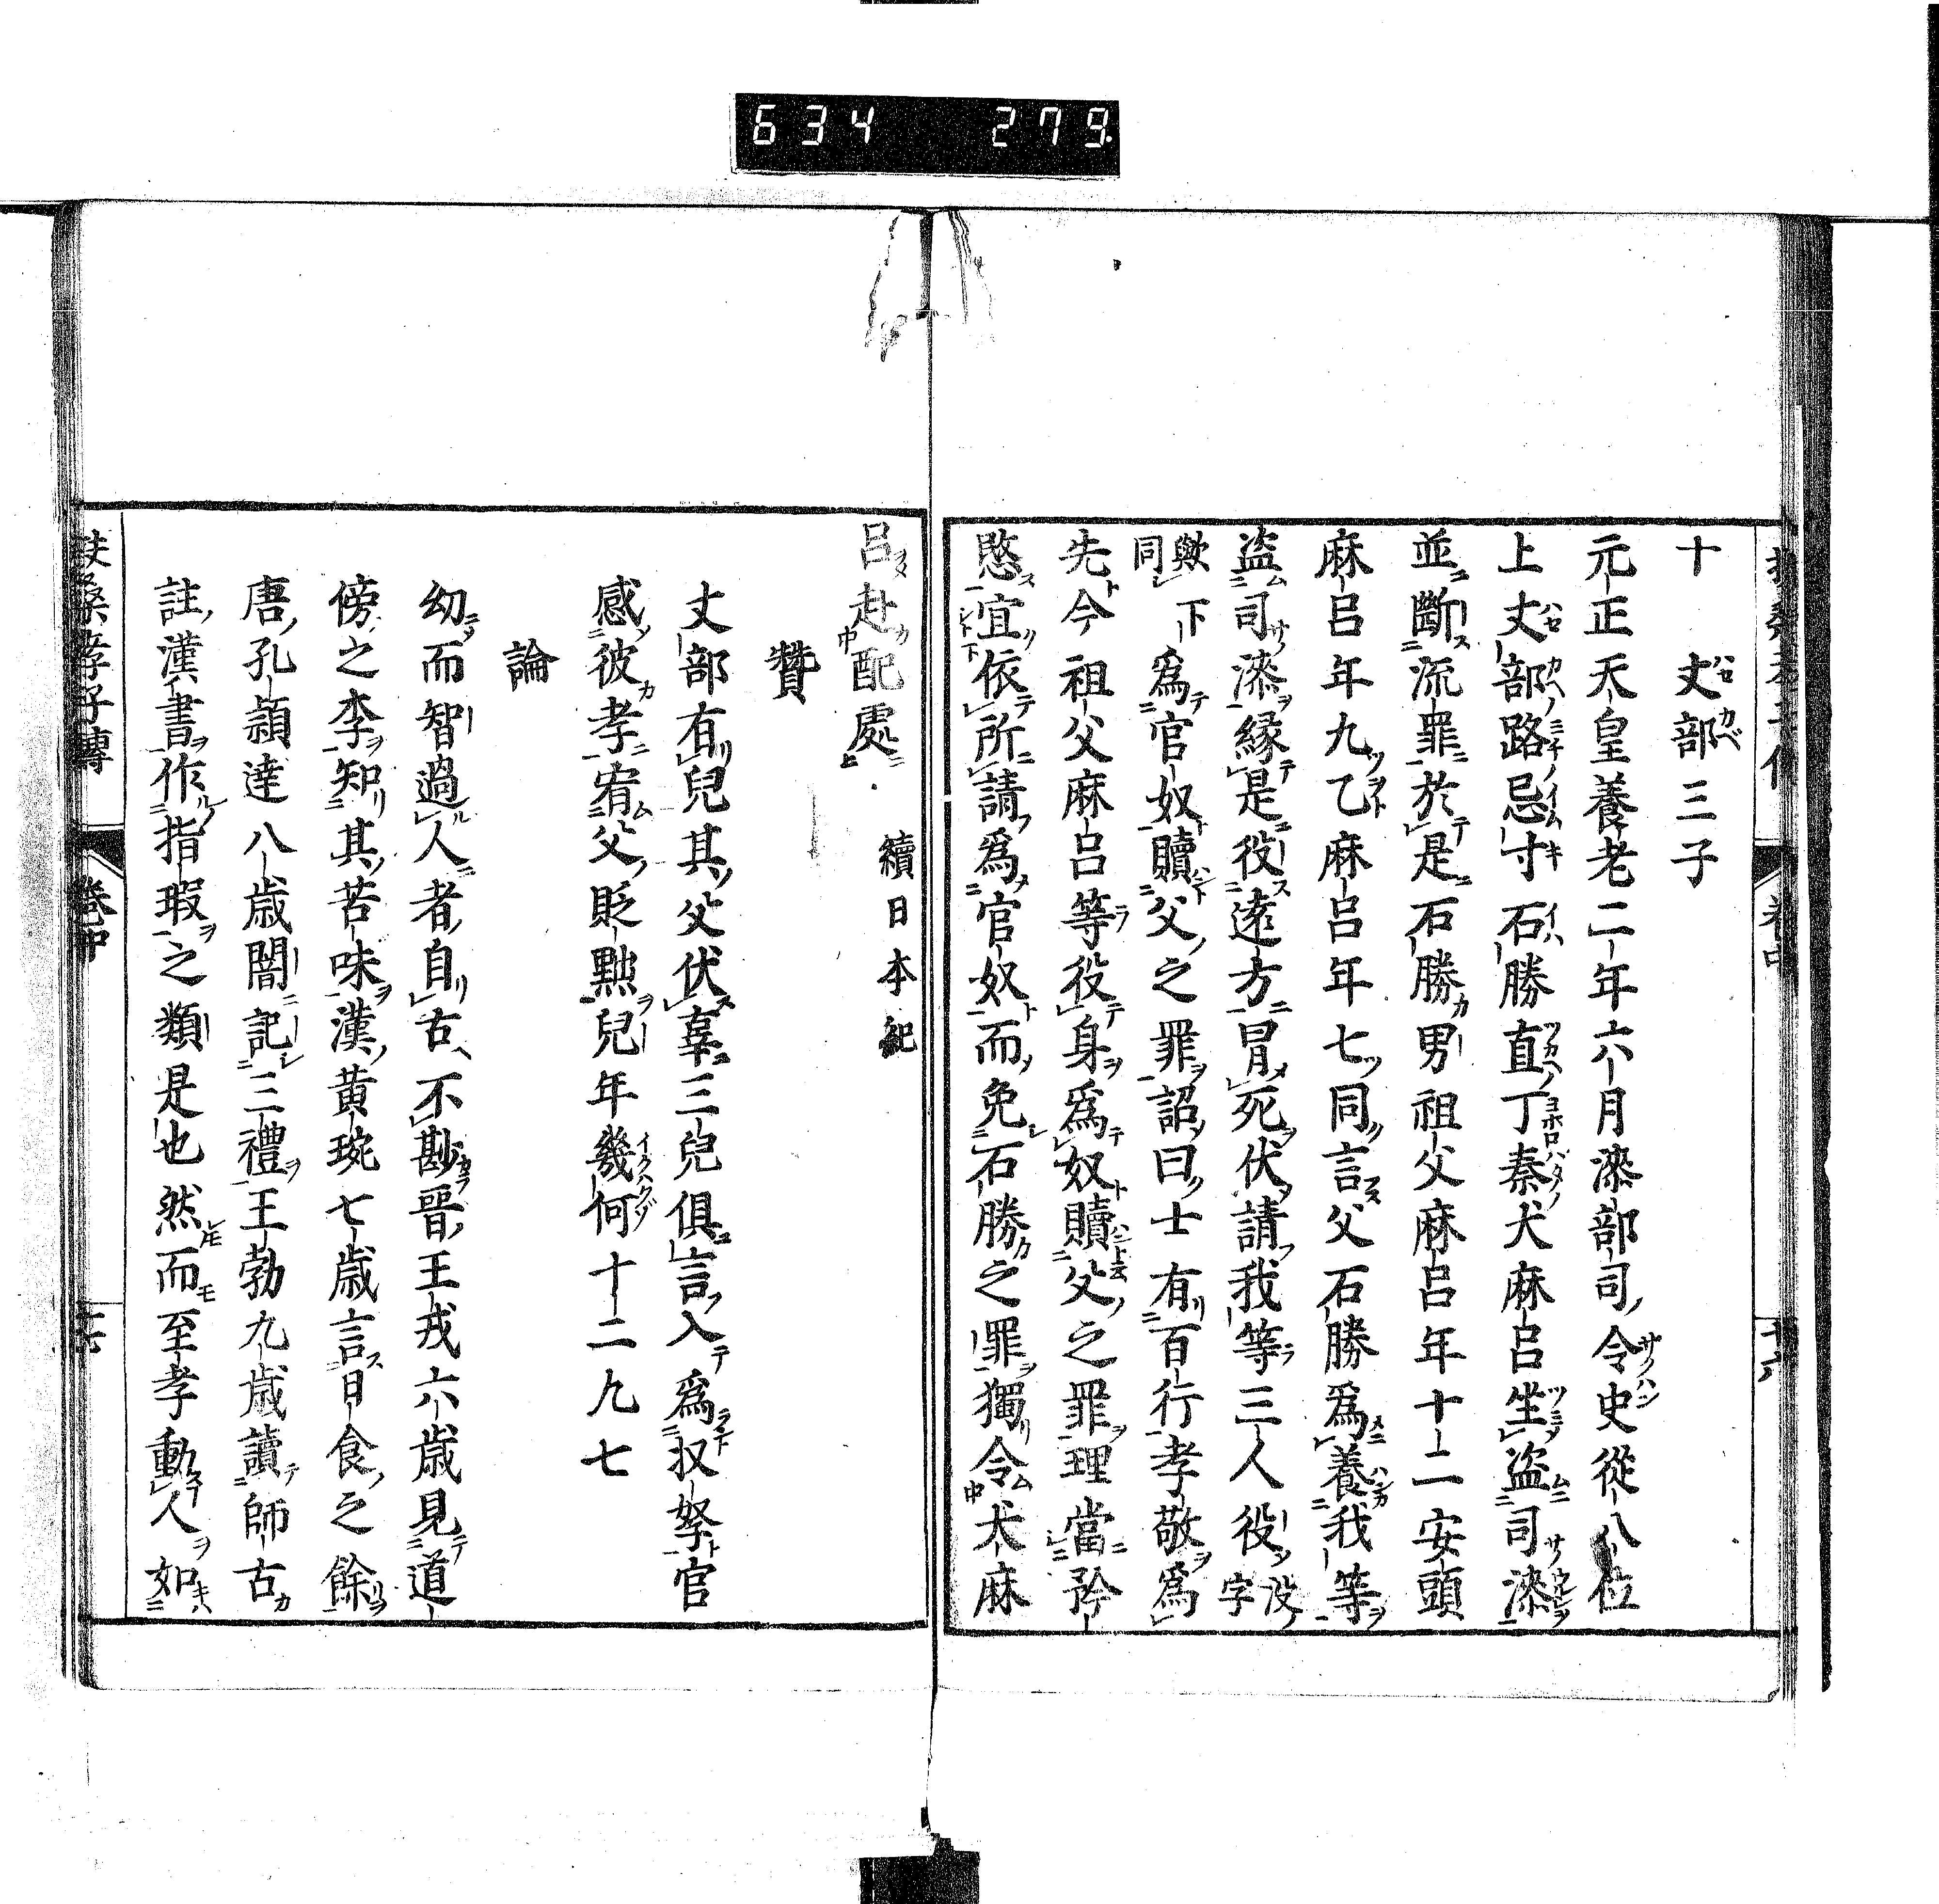 634 279
十 丈部三子
元正天皇養老二年六月漆部司令史從八位
上丈部路忌寸石勝直丁秦犬麻呂坐盜司漆
並斷流罪於是石勝男祖父麻呂年十二安頭
麻呂年九乙麻呂年七同言父石勝爲養我等
盜司漆緣是役遠方冒死伏請我等三人役沒字
歟下同爲官奴贖父之罪詔曰士有百行孝敬爲
先今祖父麻呂等役身爲奴贖父之罪理當矜
愍宜依所請爲官奴而免石勝之罪獨令犬麻
呂赴配處 續日本紀
贊
丈部有兒其父伏辜三兒俱言入爲收孥官
感彼孝宥父貶黜兒年幾何十二九七
論
幼而智過人者自古不尠晉王戎六歲見道
傍之李知其苦味漢黃琬七歲言日食之餘
唐孔穎達八歲闇記三禮王勃九歲讀師古
註漢書作指瑕之類是也然而至孝動人如
扶桑孝子傳 卷中